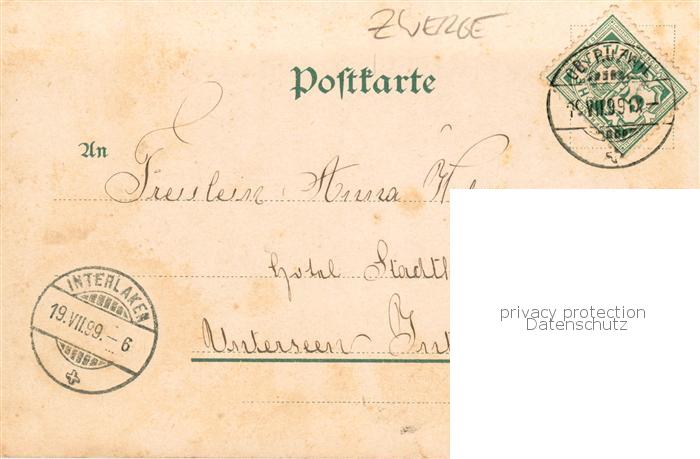 ZWERGE
Postkarte
An
Fräulein Anna
Hotel Stadth
Unterseen Int
INTERLAKEN
19.VII.99.-6
19.VII.99
privacy protection
Datenschutz